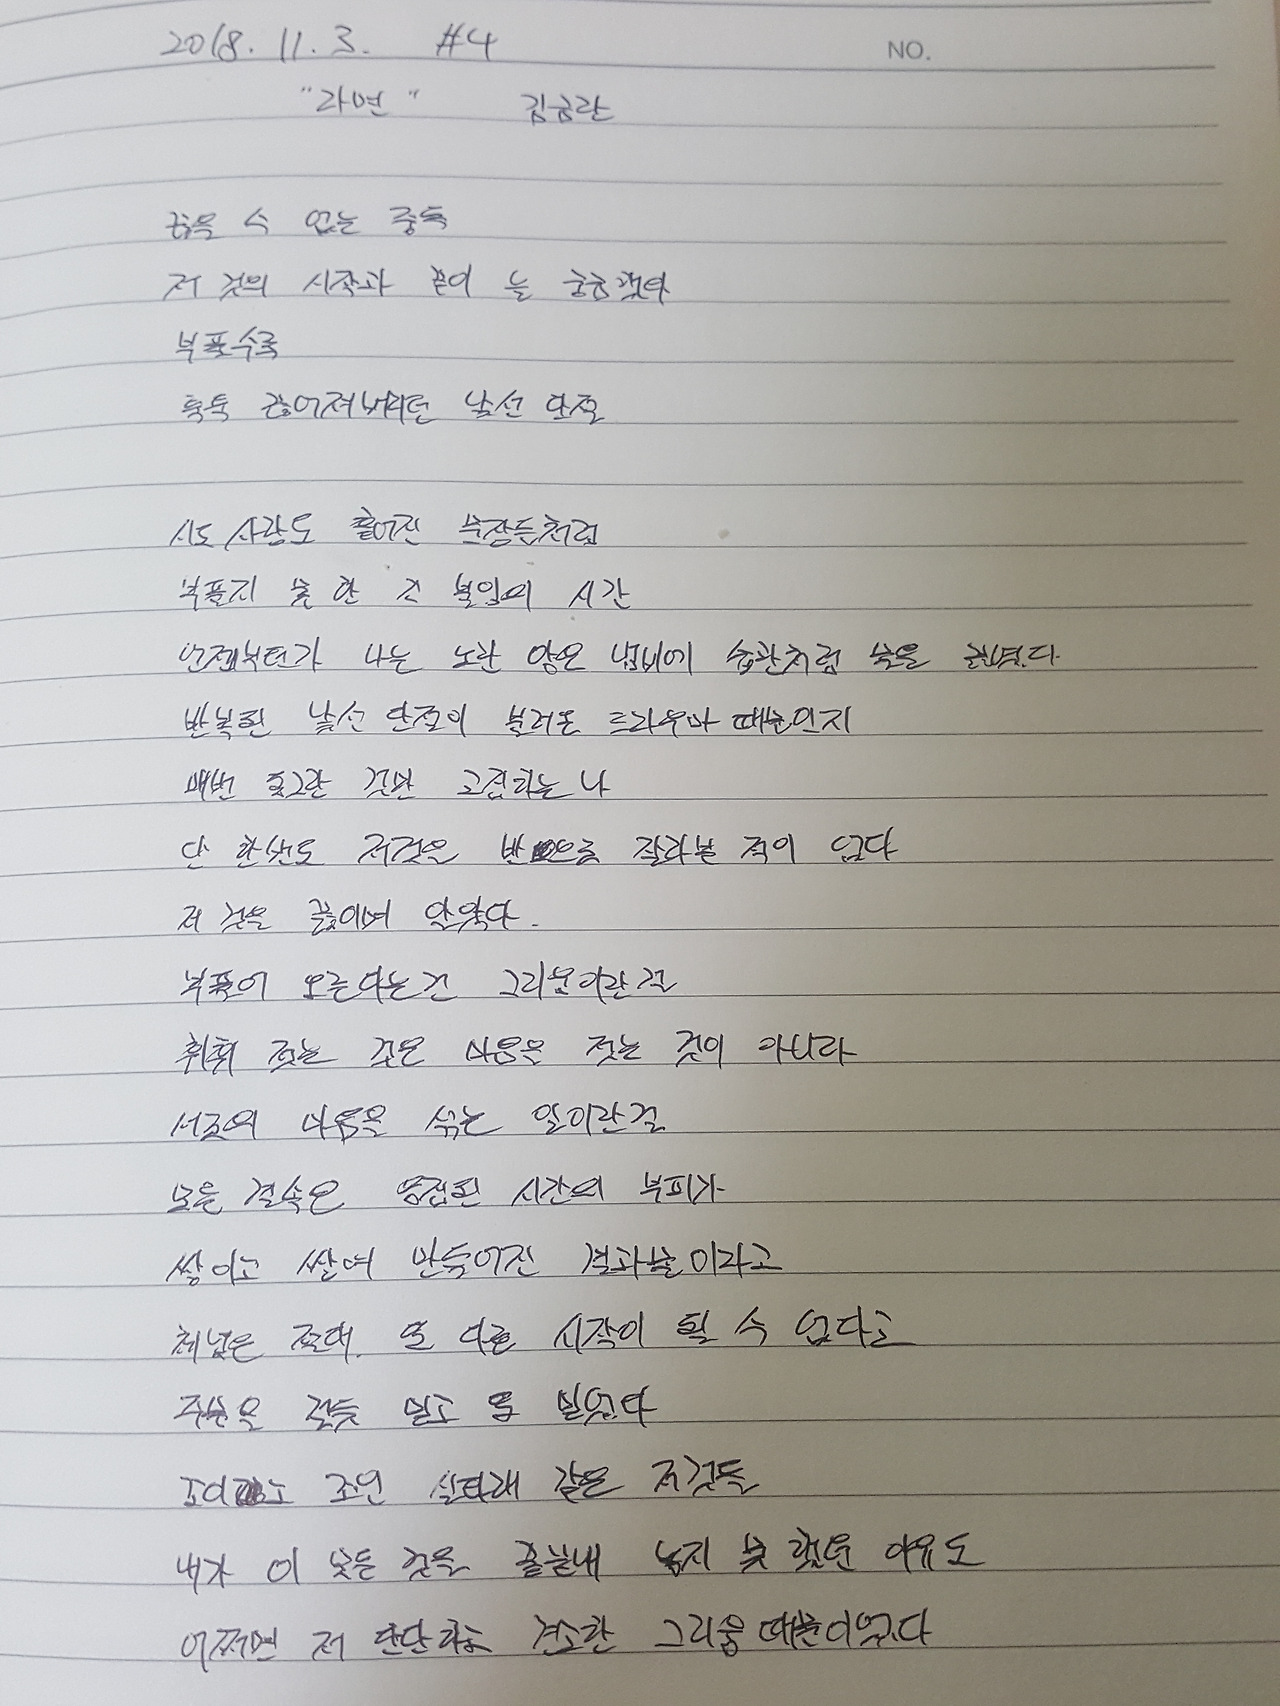 2018. 11. 3. #4 NO.
"라면" 김금란
끊을 수 없는 중독
저 것의 시작과 끝이 늘 궁금했다
부풀수록
툭툭 끊어져버리던 낯선 단절
시도 사랑도 흩어진 문장들처럼
부풀지 못 한 건 몰입의 시간
언제부턴가 나는 노란 양은 냄비에 습관처럼 물을
반복된 낯선 단절이 불러온 트라우마 때문인지
매번 동그란 것만 고집하는 나
단 한번도 저것을 반으로 잘라본 적이 없다
저 것을 끓이며 알았다.
부풀어 오른다는건 그리움이란걸
휘휘 젓는 것은 마음을 젓는 것이 아니라
서로의 마음을 섞는 일이란걸
모든 결속은 응집된 시간의 부피가
쌓이고 쌓여 만들어진 결과물이라고
체념은 절대 또 다른 시작이 될 수 없다고
주문을 걸듯 믿고 또 믿었다
꼬이고 꼬인 실타래 같은 저것들
내가 이 모든 것을 끝끝내 놓지 못 했던 이유도
어쩌면 저 단단하고 견고한 그리움 때문이었다